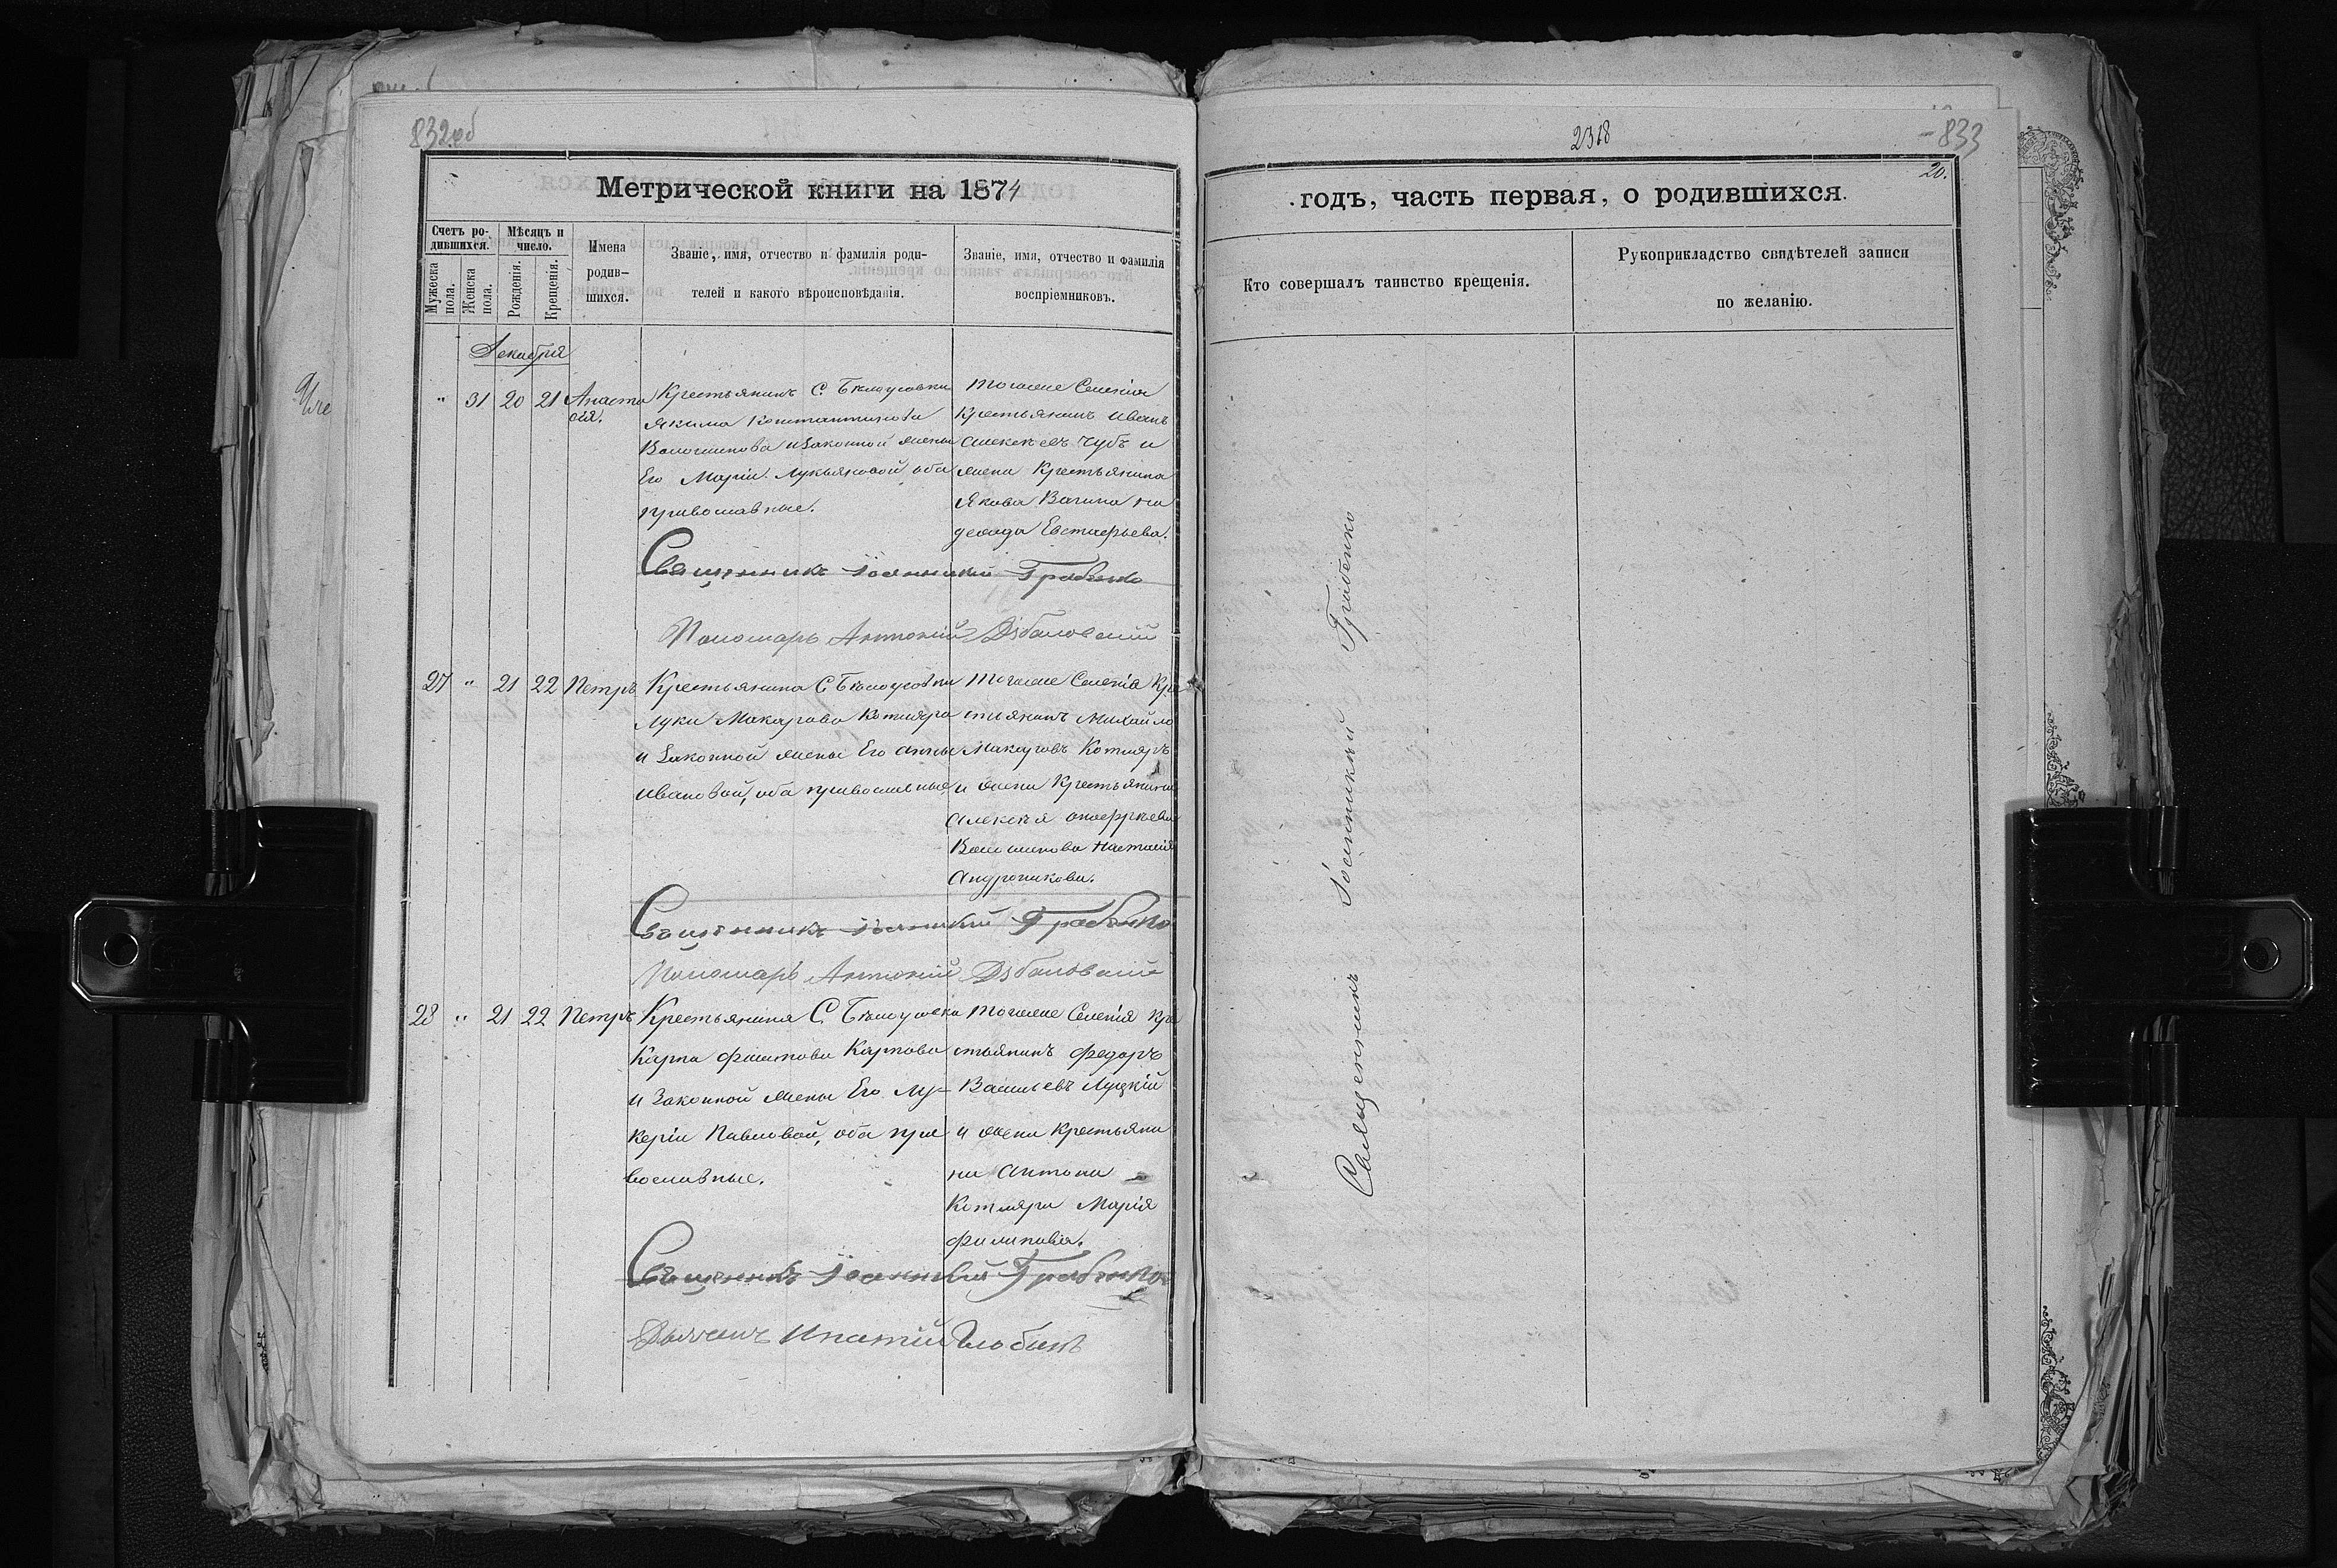 832об
Метрической книги на 1874
Счетъ ро-
дившихся.
Мужеска
пола.
Женска
пола.
Мѣсяцъ и
число.
Рожденія.
Крещенія.
Имена
родив-
шихся.
Званіе, имя, отчество и фамилія роди-
телей и какого вѣроисповѣданія.
Званіе, имя, отчество и фамилія
воспріемниковъ.
Декабрія
" 31 20 21 Анаста
сія.
Крестьянинъ С. Бѣлоусовки
Якима Константинова
и Законной жены
Его Маріи Лукьяновой оба
православные.
тогоже Селенія
Крестьянинъ Иванъ
Алексѣевъ Чубъ и
жена Крестьянина
Якова На
дежда Евстафьева.
Священникъ Іоанникій Грабенко
Пономарь Антоній
27 " 21 22 Петръ
Крестьянина С. Бѣлоусовки
Луки Макарова Котляра
и Законной жены Его Анны
Ивановой, оба православные
тогоже Селенія Кре
стьянинъ Михайло
Макаровъ Котляръ
и жена Крестьянина
Алексѣя
Настасія
Андроникова.
Священникъ Іоанникій Грабенко
Пономарь Антоній
28 " 21 22 Петръ
Крестьянина С. Бѣлоусовки
Карпа Филипова Карпова
и Законной жены Его Лу-
керіи Павловой, оба пра
вославные.
тогоже Селенія Кре
стьянинъ Федоръ
Васильевъ Луцкій
и жена Крестьяни
на Антона
Котляра Марія
Филипова.
Священникъ Іоанникій Грабенко
Ипатій
2318
-833
20.
годъ, часть первая, о родившихся.
Кто совершалъ таинство крещенія.
Рукоприкладство свидѣтелей записи
по желанію.
Священникъ Іоанникій Грабенко